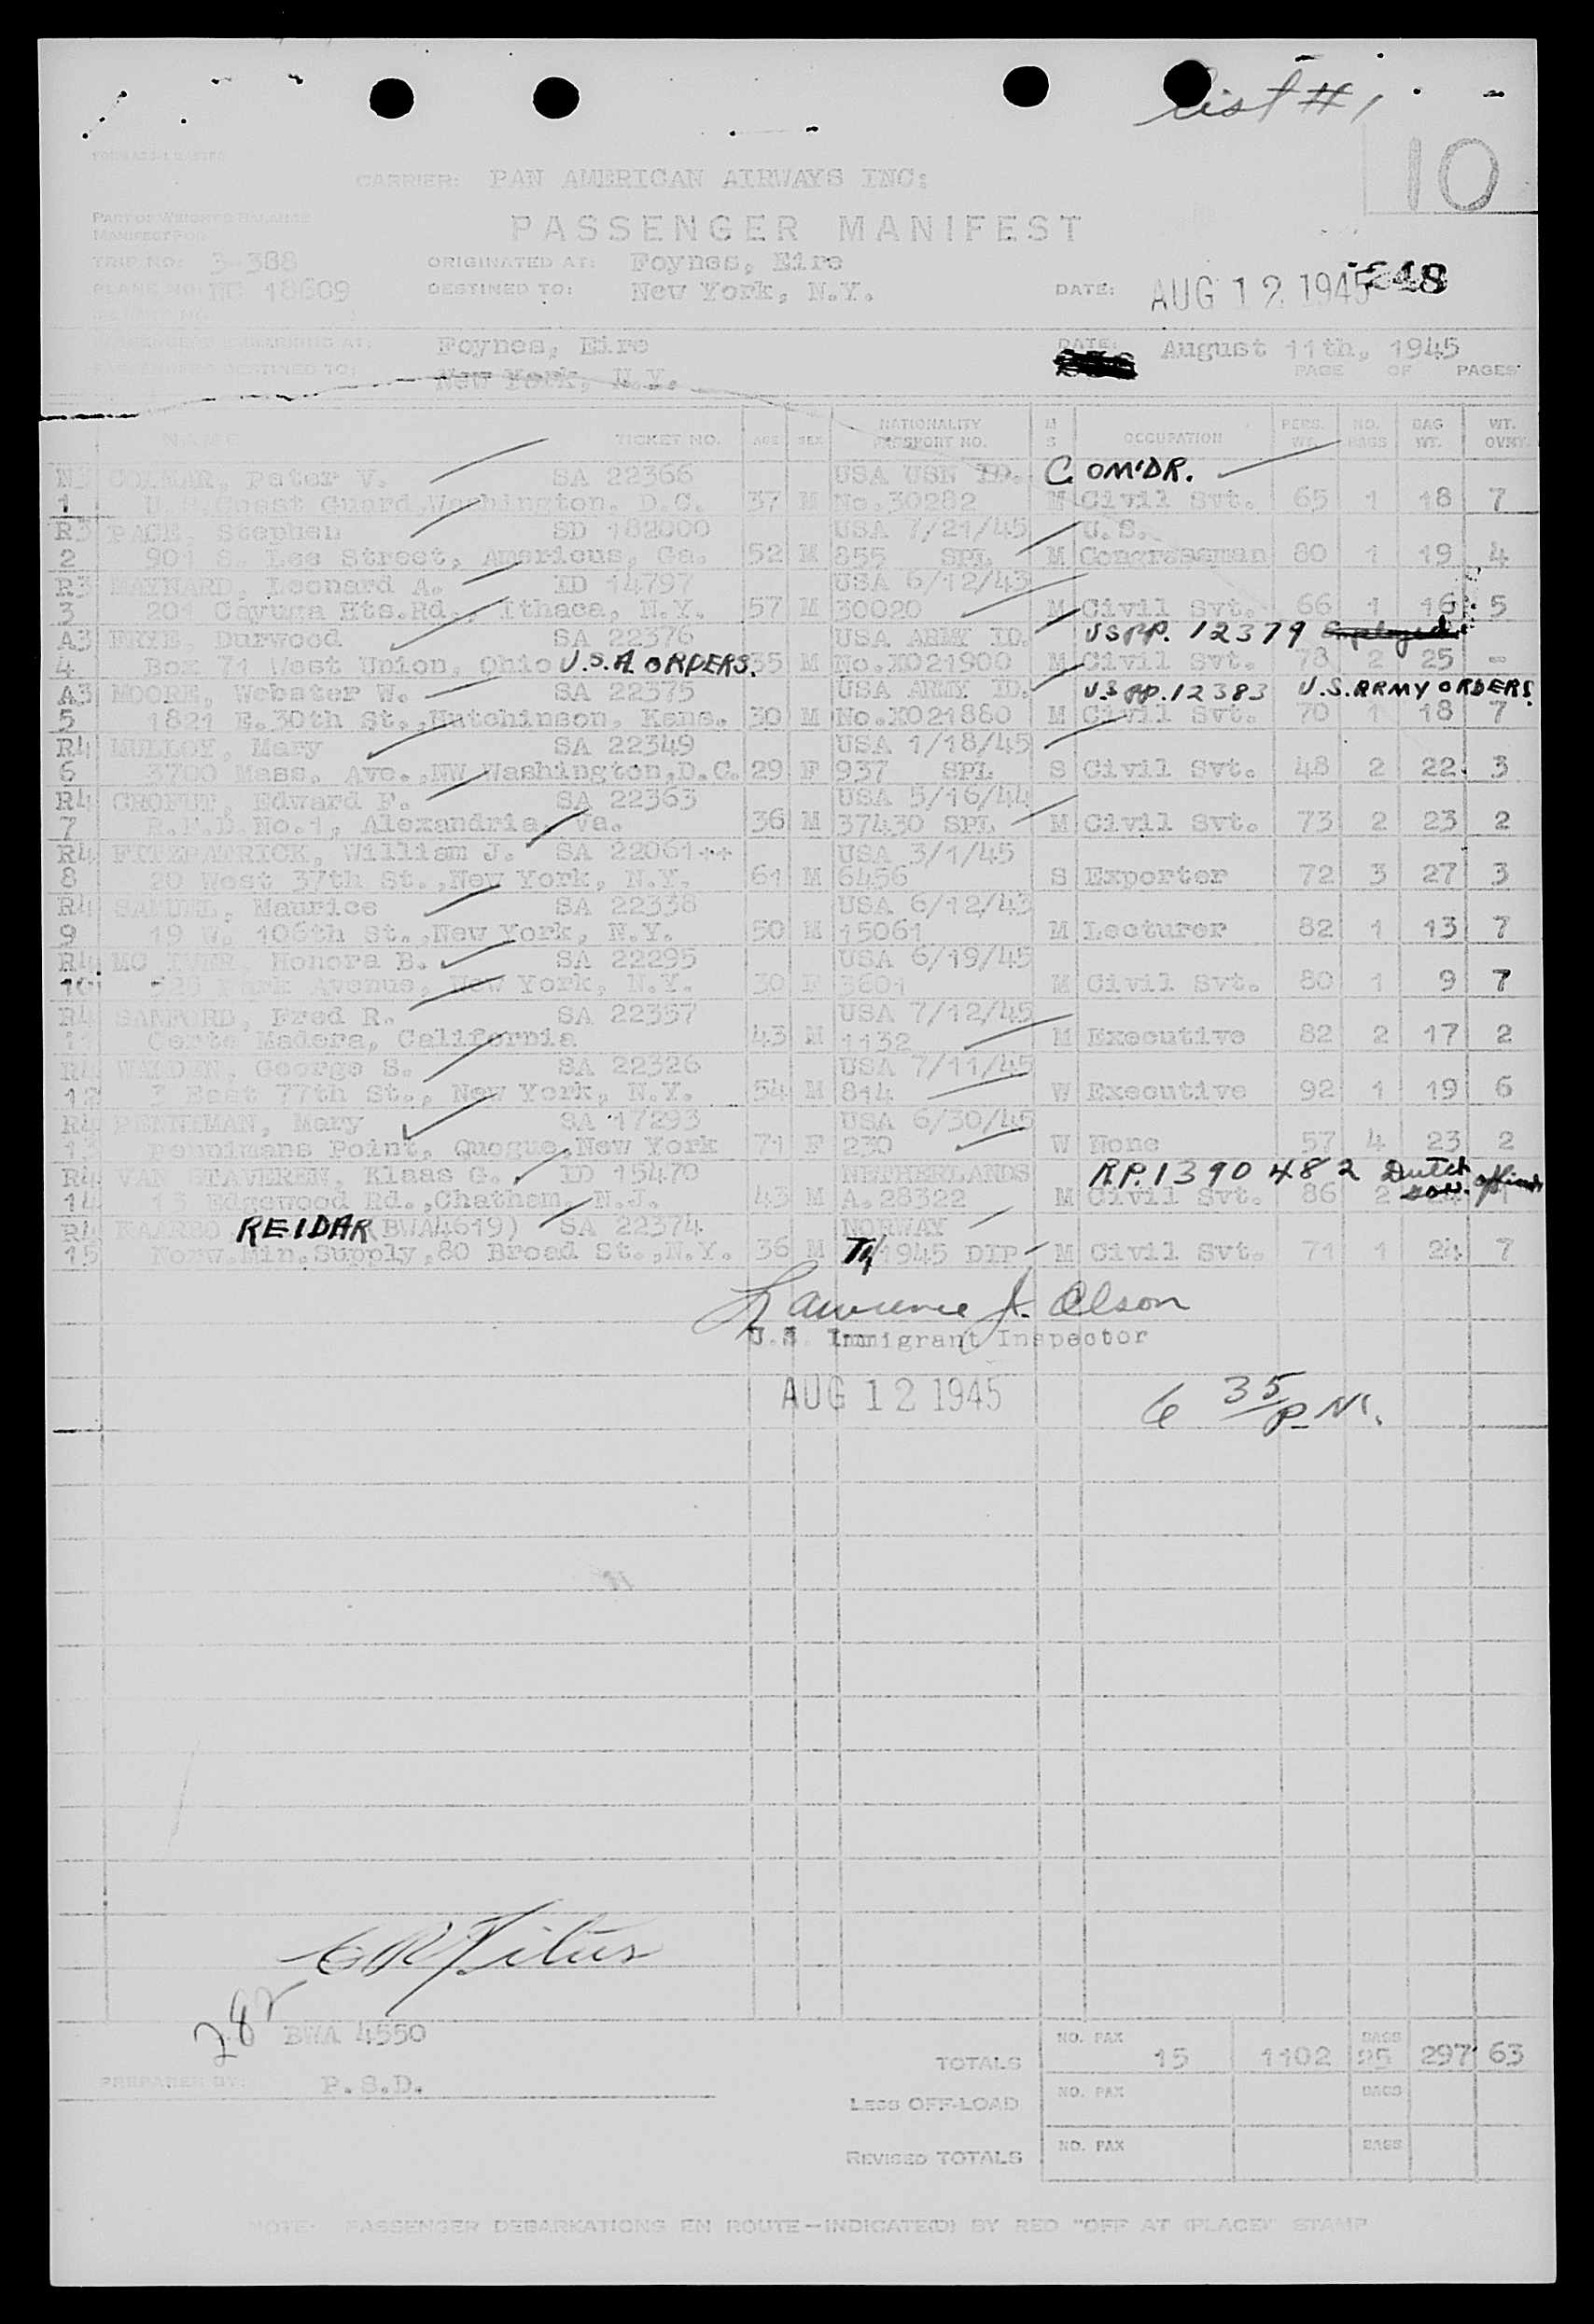 List # 1
10
CARRIER: PAN AMERICAN AIRWAYS INC:
PART OF WEIGHT & BALANCE
MANIFEST FOR
PASSENGER MANIFEST
TRIP NO: 3-388 ORIGINATED AT: Foynes, Eire
PLANE NO: NC 18609 DESTINED TO: New York, N.Y. DATE: AUG 12 1945
Foynes, Eire DATE: August 11th, 1945
PASSENGERS DESTINED TO: New York, N.Y. PAGE OF PAGES
NAME TICKET NO. AGE SEX NATIONALITY PASSPORT NO. M S OCCUPATION PERS. WT. NO. BAGS BAG WT. WT. OVRT.
COLMAR, Peter V. SA 22366 USA USN ID. COM'DR.
1 U.S. Coast Guard, Washington. D.C. 37 M No.30282 M Civil Svt. 65 1 18 7
R3 PACE, Stephen SD 182000 USA 7/21/45 U.S.
2 901 S. Lee Street, Americus, Ga. 52 M 855 SPL M Congressman 80 1 19 4
R3 MAYNARD, Leonard A. ID 14797 USA 6/12/43
3 201 Cayuga Hts.Rd., Ithaca, N.Y. 57 M 30020 M Civil Svt. 66 1 16 5
A3 FRYE, Durwood SA 22376 USA ARMY ID. US PP. 12379
4 Box 71 West Union, Ohio U.S.A ORDERS. 35 M No.X021900 M Civil Svt. 78 2 25 -
A3 MOORE, Webster W. SA 22375 USA ARMY ID. U.S PP. 12383 U.S. ARMY ORDERS.
5 1821 E.30th St.,Hutchinson, Kans. 30 M No.X021880 M Civil Svt. 70 1 18 7
R4 MULLOY, Mary SA 22349 USA 1/18/45
6 3700 Mass. Ave.,NW Washington,D.C. 29 F 937 SPL S Civil Svt. 48 2 22 3
R4 GROFUT, Edward F. SA 22363 USA 5/16/44
7 R.F.D. No.1, Alexandria, Va. 36 M 37430 SPL M Civil Svt. 73 2 23 2
R4 FITZPATRICK, William J. SA 22061++ USA 3/1/45
8 20 West 37th St.,New York, N.Y. 61 M 6456 S Exporter 72 3 27 3
R4 SAMUEL, Maurice SA 22338 USA 6/12/43
9 19 W. 106th St.,New York, N.Y. 50 M 15061 M Lecturer 82 1 13 7
R4 Honora B. SA 22295 USA 6/19/45
10 Park Avenue, New York, N.Y. 30 F 3601 M Civil Svt. 80 1 9 7
R4 SANFORD, Fred R. SA 22357 USA 7/12/45
11 Corte Madera, California 43 M 1132 M Executive 82 2 17 2
R4 WALDEN, George S. SA 22326 USA 7/11/45
12 3 East 77th St., New York, N.Y. 54 M 814 W Executive 92 1 19 6
R4 PENNIMAN, Mary SA 17293 USA 6/30/45
13 Pennimans Point, Quogue,New York 71 F 230 W None 57 4 23 2
R4 VAN STAVEREN, Klaas G. ID 15470 NETHERLANDS R.P. 1390482 Dutch Gov.
14 15 Edgewood Rd.,Chatham, N.J. 43 M A.28322 M Civil Svt. 86 2
R4 KAARBO REIDAR (BWA4619) SA 22374 NORWAY
15 Norw.Min.Supply,80 Broad St.,N.Y. 36 M 1945 DIP M Civil Svt. 71 1 24 7
Lawrence J. Olson
U.S. Immigrant Inspector
AUG 12 1945 6 35/P.M.
282 BWA 4550
TOTALS NO. PAX 15 1102 BAGS 25 297 63
PREPARED BY: P.S.D.
LESS OFF-LOAD NO. PAX BAGS
REVISED TOTALS NO. PAX BAGS
NOTE: PASSENGER DEBARKATIONS EN ROUTE—INDICATE(D) BY RED "OFF AT (PLACE)" STAMP